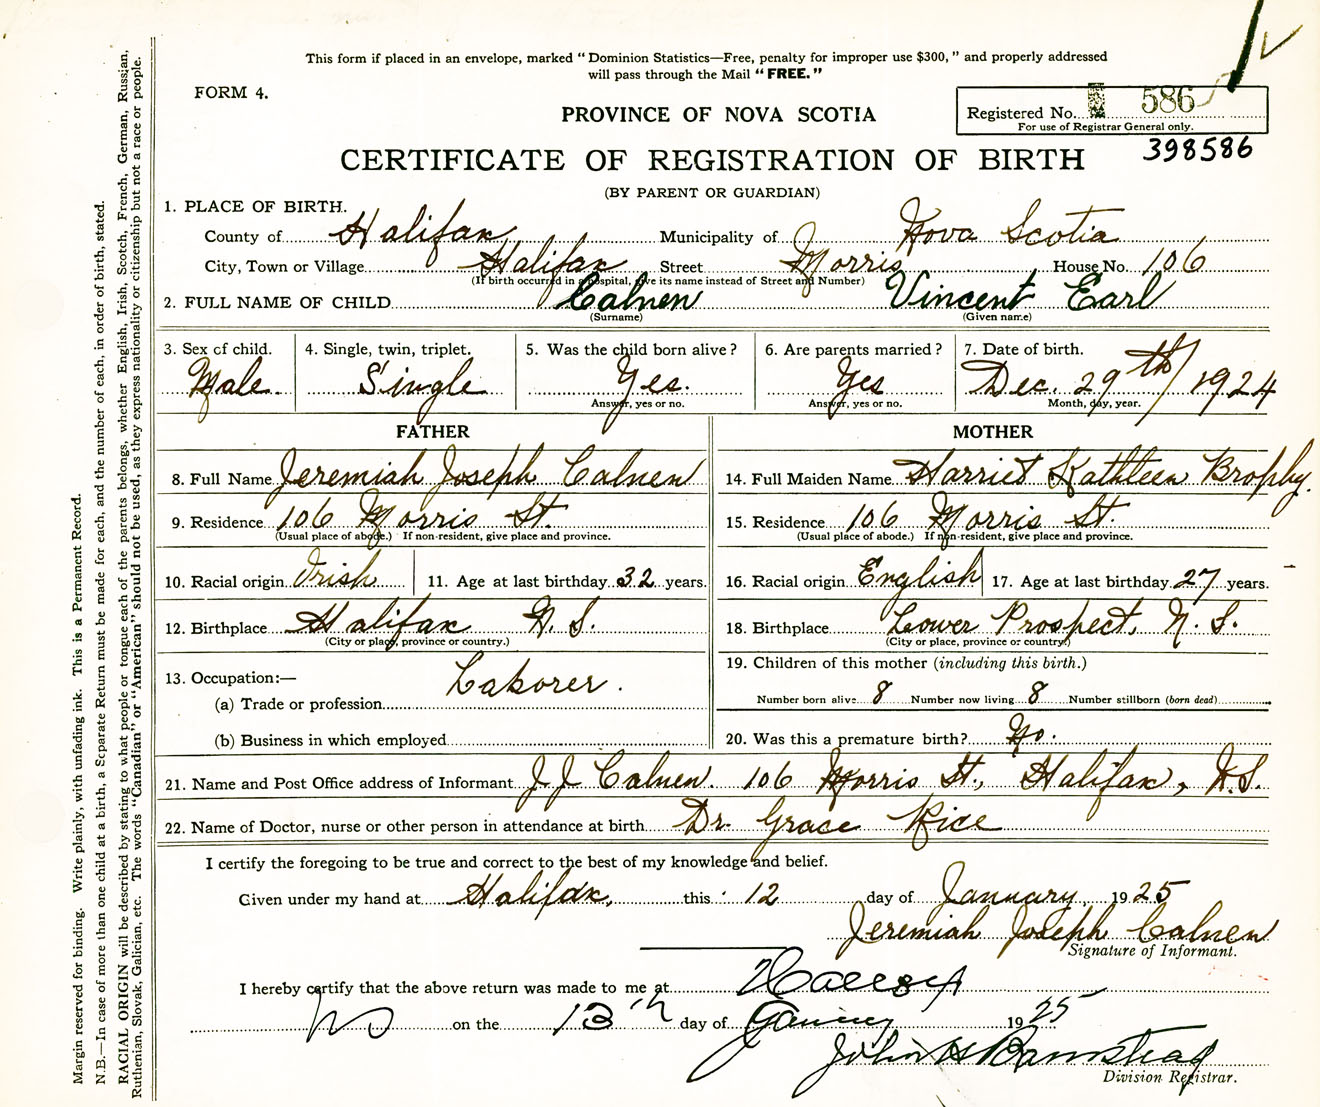 This form if placed in an envelope, marked “Dominion Statistics—Free, penalty for improper use $300,” and properly addressed
will pass through the Mail “FREE.”
FORM 4.
PROVINCE OF NOVA SCOTIA
Registered No. 586
For use of Registrar General only.
398586
CERTIFICATE OF REGISTRATION OF BIRTH
(BY PARENT OR GUARDIAN)
1. PLACE OF BIRTH.
County of Halifax Municipality of Nova Scotia
City, Town or Village Halifax Street Morris House No. 106
(If birth occurred in a hospital, give its name instead of Street and Number)
2. FULL NAME OF CHILD Calnen Vincent Earl
(Surname) (Given name)
3. Sex of child. 4. Single, twin, triplet. 5. Was the child born alive? 6. Are parents married? 7. Date of birth.
Male Single Yes. Yes Dec. 29th/1924
Answer, yes or no. Answer, yes or no. Month, day, year.
FATHER
8. Full Name Jeremiah Joseph Calnen
9. Residence 106 Morris St.
(Usual place of abode.) If non-resident, give place and province.
10. Racial origin Irish 11. Age at last birthday 32 years.
12. Birthplace Halifax N. S.
(City or place, province or country.)
13. Occupation:— Laborer.
(a) Trade or profession
(b) Business in which employed
MOTHER
14. Full Maiden Name Harriet Kathleen Brophy.
15. Residence 106 Morris St.
(Usual place of abode.) If non-resident, give place and province.
16. Racial origin English 17. Age at last birthday 27 years.
18. Birthplace Lower Prospect, N. S.
(City or place, province or country.)
19. Children of this mother (including this birth.)
Number born alive 8 Number now living 8 Number stillborn (born dead)
20. Was this a premature birth? No.
21. Name and Post Office address of Informant J. J. Calnen. 106 Morris St., Halifax, N.S.
22. Name of Doctor, nurse or other person in attendance at birth Dr. Grace Rice
I certify the foregoing to be true and correct to the best of my knowledge and belief.
Given under my hand at Halifax, this 12 day of January, 1925
Jeremiah Joseph Calnen
Signature of Informant.
I hereby certify that the above return was made to me at
NS on the 13th day of January 1925
John H Barnstead
Division Registrar.
Margin reserved for binding. Write plainly, with unfading ink. This is a Permanent Record.
N.B.—In case of more than one child at a birth, a Separate Return must be made for each, and the number of each, in order of birth, stated.
RACIAL ORIGIN will be described by stating to what people or tongue each of the parents belongs, whether English, Irish, Scotch, French, German, Russian,
Ruthenian, Slovak, Galician, etc. The words “Canadian” or “American” should not be used, as they express nationality or citizenship but not a race or people.